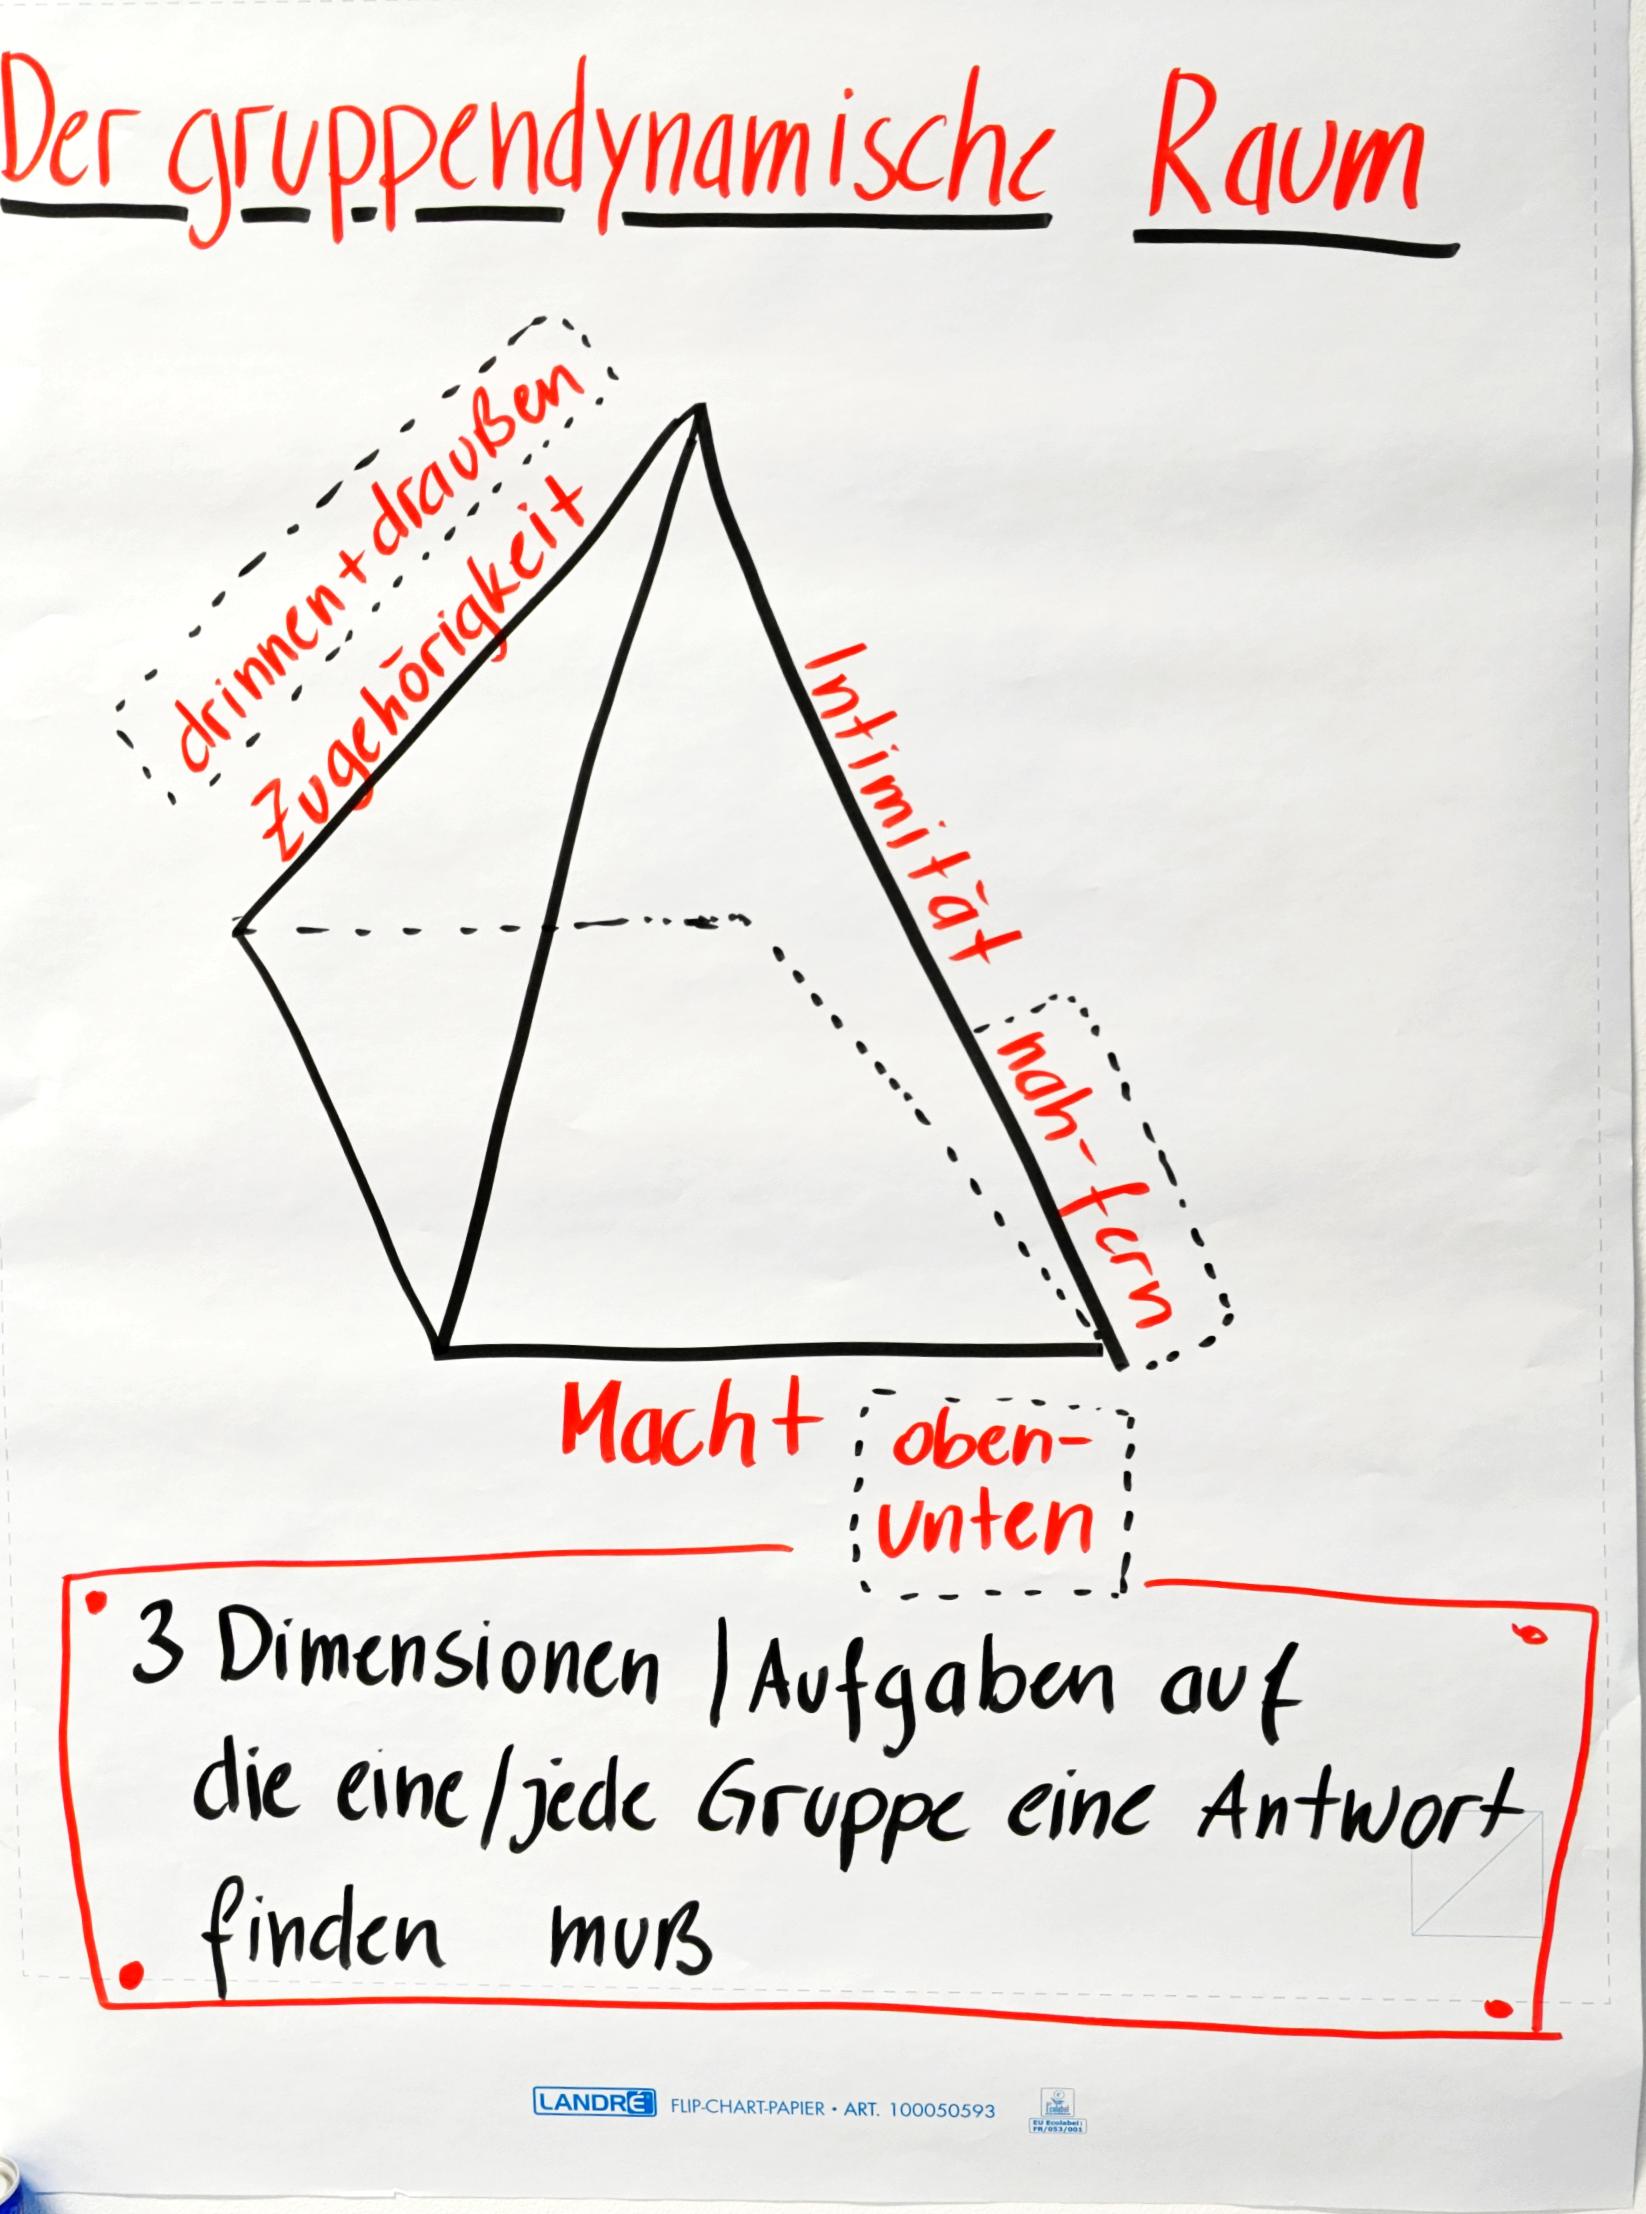 Der gruppendynamische Raum
drinnen + draußen
Zugehörigkeit
Intimität
nah - fern
Macht
oben-
unten
3 Dimensionen / Aufgaben auf
die eine / jede Gruppe eine Antwort
finden muß
LANDRÉ FLIP-CHART-PAPIER • ART. 100050593
EU Ecolabel:
FR/053/001